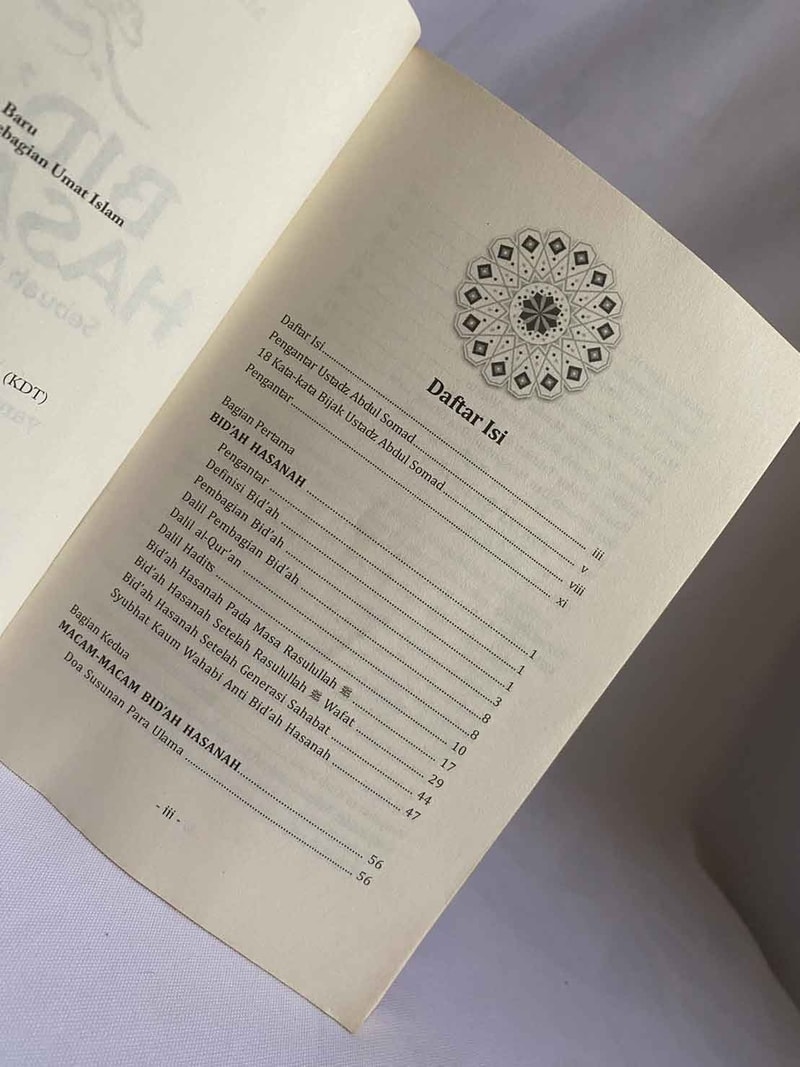 Baru
ebagian Umat Islam
(KDT)
Daftar Isi
Daftar Isi.......... iii
Pengantar Ustadz Abdul Somad.......... v
18 Kata-kata Bijak Ustadz Abdul Somad.......... viii
Pengantar.......... xi
Bagian Pertama
BID'AH HASANAH .......... 1
Pengantar .......... 1
Definisi Bid'ah .......... 1
Pembagian Bid'ah .......... 3
Dalil Pembagian Bid'ah .......... 8
Dalil al-Qur'an .......... 8
Dalil Hadits .......... 10
Bid'ah Hasanah Pada Masa Rasulullah ﷺ .......... 17
Bid'ah Hasanah Setelah Rasulullah ﷺ Wafat .......... 29
Bid'ah Hasanah Setelah Generasi Sahabat .......... 44
Syubhat Kaum Wahabi Anti Bid'ah Hasanah .......... 47
Bagian Kedua
MACAM-MACAM BID'AH HASANAH.......... 56
Doa Susunan Para Ulama .......... 56
- iii -